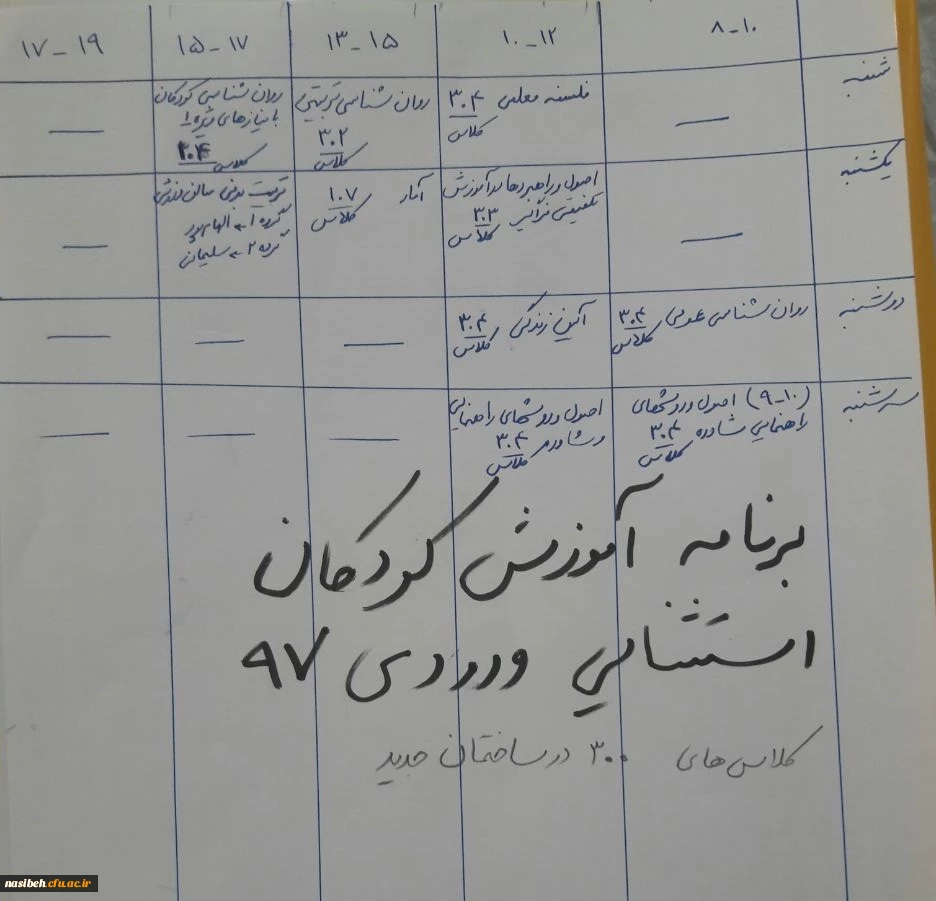 ۸-۱۰ ۱۰-۱۲ ۱۳-۱۵ ۱۵-۱۷ ۱۷-۱۹
شنبه
—
فلسفه معلمی ۳۰۴
کلاس
روان شناسی تربیتی
۳۰۲
کلاس
روان شناسی کودکان
با نیازهای ویژه ۱
کلاس ۲۰۴
—
یکشنبه
—
اصول و راهبردها در آموزش
تلفیقی فراگیر ۳۰۳
کلاس
آمار ۱۰۷
کلاس
تربیت بدنی سالن ورزشی
گروه ۱ ← الهامپور
گروه ۲ ← سلیمانی
—
دوشنبه
روان شناسی عمومی ۳۰۴
کلاس
آئین زندگی ۳۰۴
کلاس
—
—
—
سه شنبه
(۹-۱۰) اصول و روشهای
راهنمایی مشاوره ۳۰۴
کلاس
اصول و روشهای راهنمایی
و مشاوره ۳۰۴
کلاس
—
—
—
برنامه آموزش کودکان
استثنائی ورودی ۹۷
کلاس های ۳۰۰ در ساختمان جدید
nasibeh.cfu.ac.ir